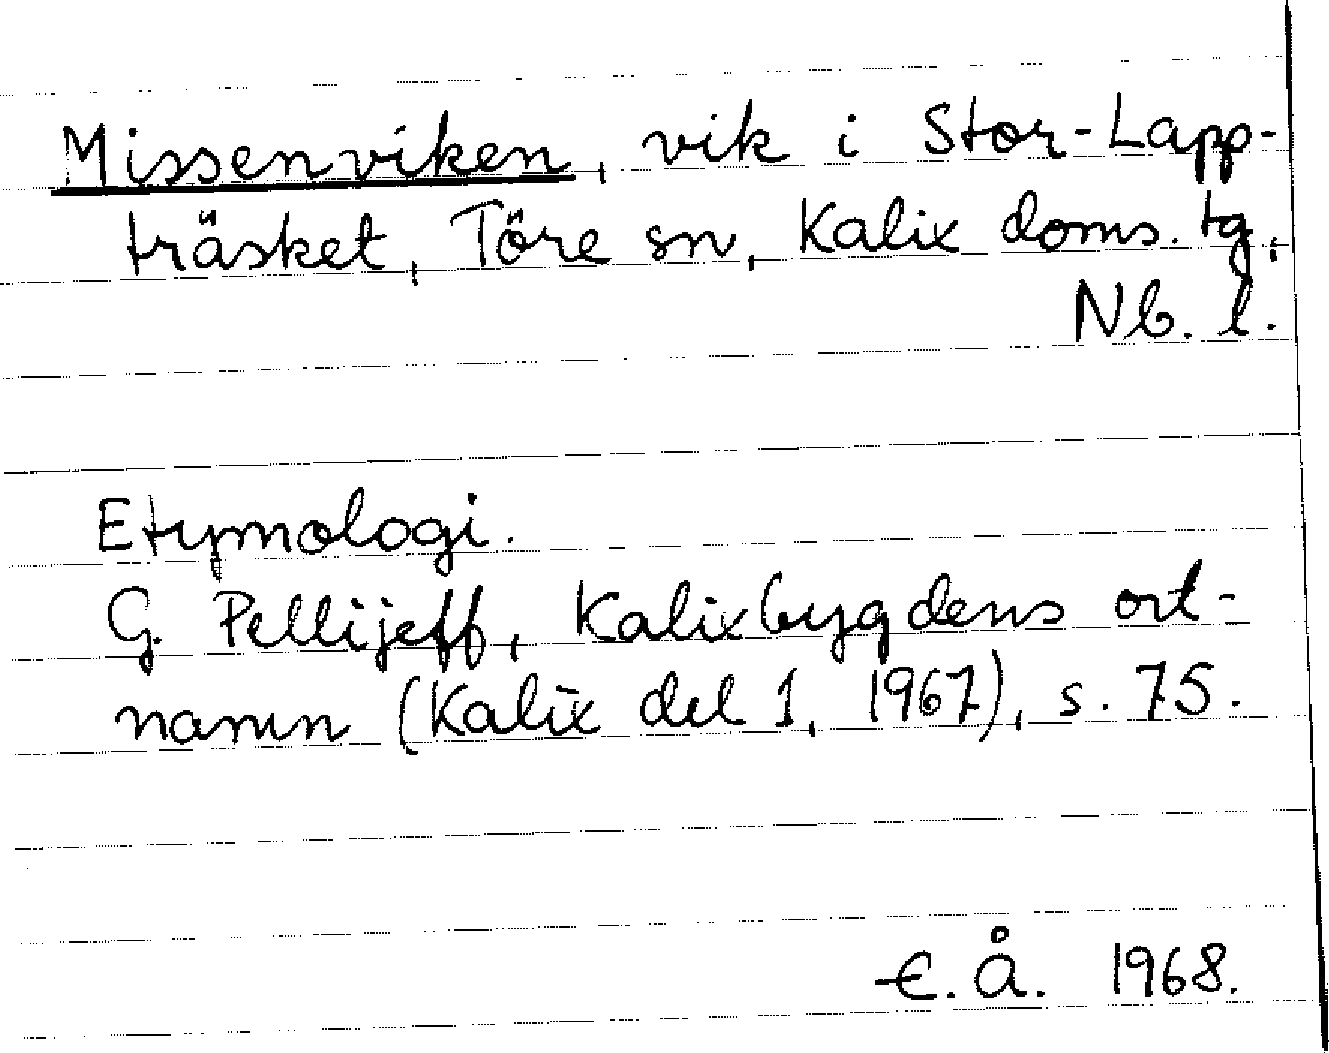 Missenviken, vik i Stor-Lapp-
träsket, Töre sn, Kalix doms. tg,
Nb. l.
Etymologi.
G. Pellijeff, Kalixbygdens ort-
namn (Kalix del 1, 1967), s. 75.
E. Å. 1968.